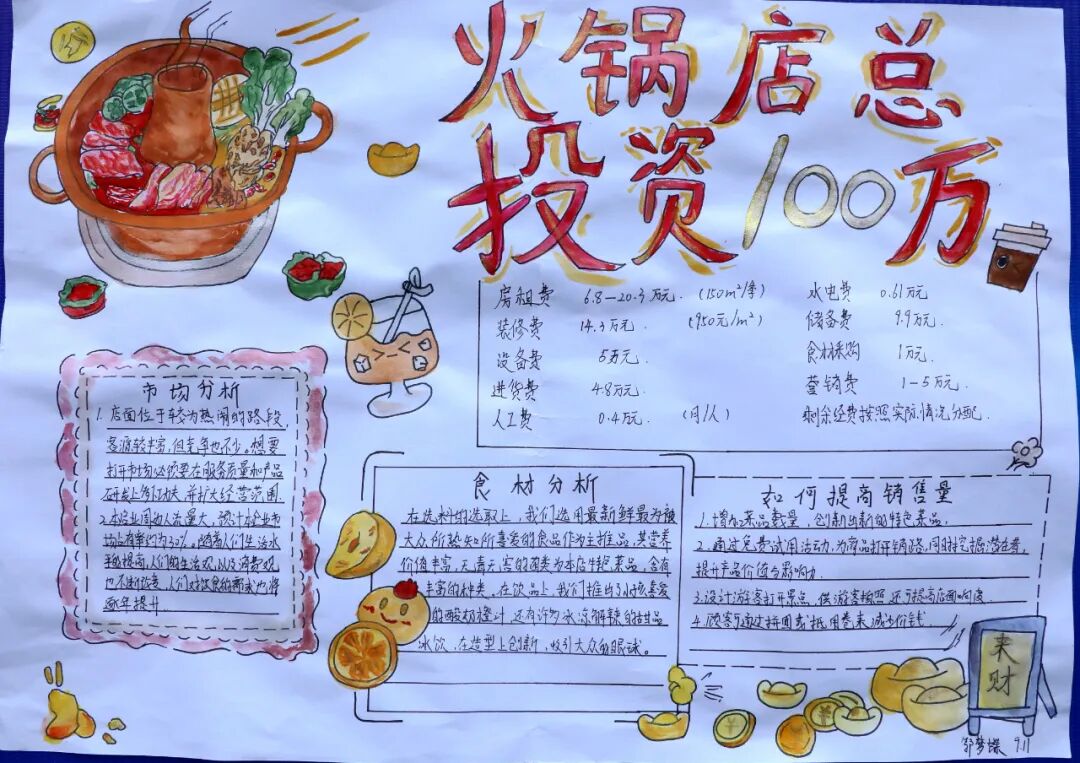 火锅店总
投资100万
房租费 6.8—20.3万元.（150m²/季）
装修费 14.3万元. （950元/m²）
设备费 5万元.
进货费 4.8万元.
人工费 0.4万元. （月/人）
水电费 0.61万元
储备费 9.9万元.
食材采购 1万元.
营销费 1-5万元.
剩余经费按照实际情况分配.
市场分析
1. 店面位于较为热闹的路段,
客源较丰富,但竞争也不少。想要
打开市场必须要在服务质量和产品
研发上多下功夫,并扩大经营范围.
2.本店业周边人流量大,预计本企业市
场占有率约为30%。随着人们生活水
平的提高,人们的生活观,以及消费观
也不断改变,人们对饮食的需求也将
逐年提升
食材分析
在选料的选取上,我们选用最新鲜最为被
大众所熟知所喜爱的食品作为主推品,其营养
价值丰富,
丰富的种类,在饮品上,我们推出
的酸奶橙汁,还有许多冰冻解辣的甜品
冰饮,在造型上创新,吸引大众的眼球。
如何提高销售量
1.增加菜品数量,创新出新的特色菜品.
2.通过免费试用活动,为商品打开销路,同时挖掘潜在者,
提升产品价值与影响力.
3.设计游客打开景点,供游客拍照,还可提高店面响度
4.顾客可通过拼团或抵用卷来减少价钱.
来
财
9.11